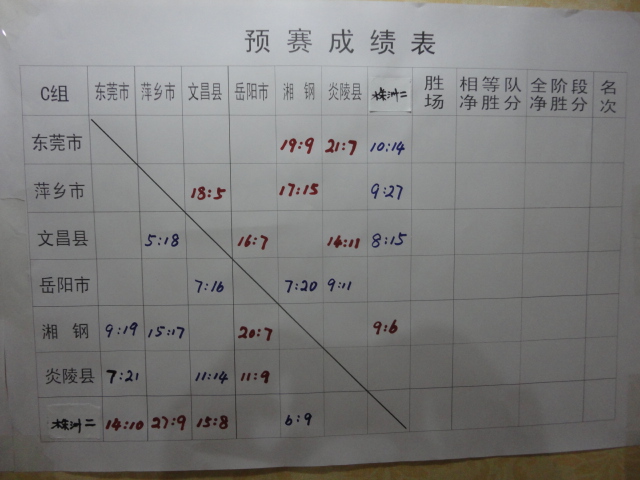 预赛成绩表
C组 东莞市 萍乡市 文昌县 岳阳市 湘钢 炎陵县 株洲二 胜场 相等队净胜分 全阶段净胜分 名次
东莞市 19:9 21:7 10:14
萍乡市 18:5 17:15 9:27
文昌县 5:18 16:7 14:11 8:15
岳阳市 7:16 7:20 9:11
湘钢 9:19 15:17 20:7 9:6
炎陵县 7:21 11:14 11:9
株洲二 14:10 27:9 15:8 6:9